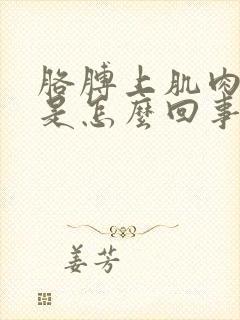 胳膊上肌肉
是怎麼回事
姜芳